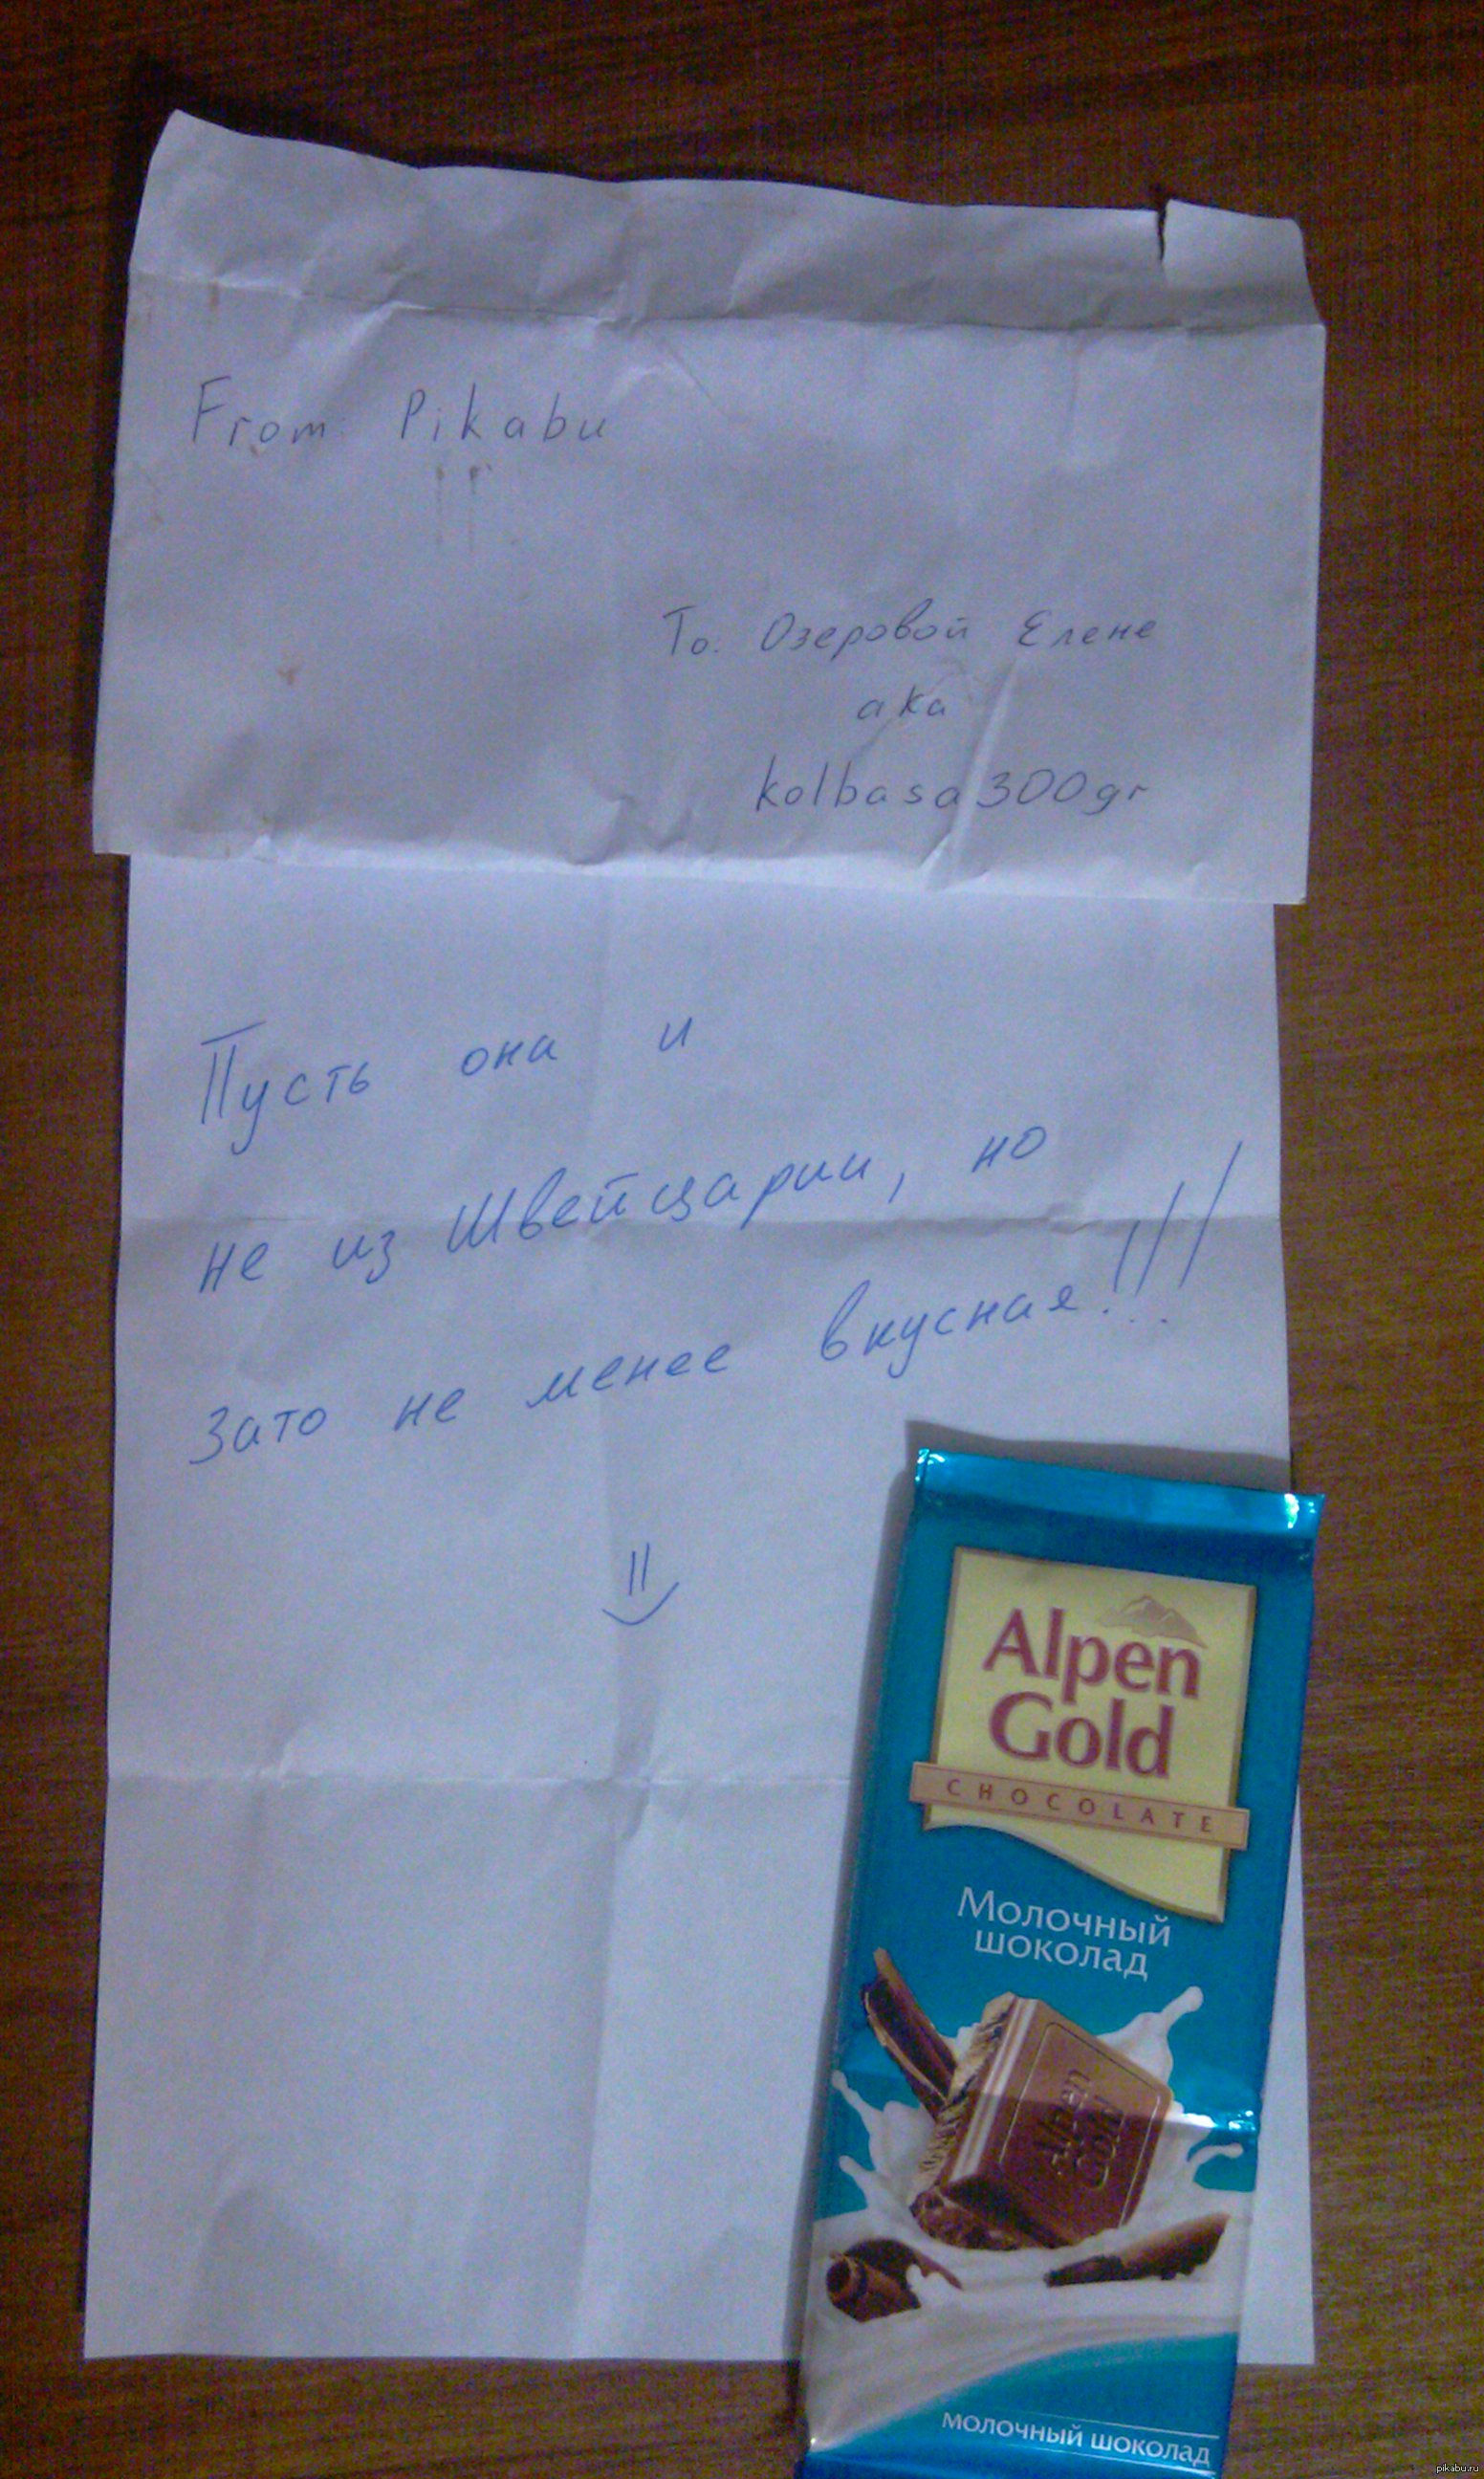 From: Pikabu
To. Озеровой Елене
aka
kolbasa300gr
Пусть она и
не из Швейцарии, но
зато не менее вкусная!!!
=)
Alpen
Gold
CHOCOLATE
Молочный
шоколад
Alpen
Gold
молочный шоколад
pikabu.ru